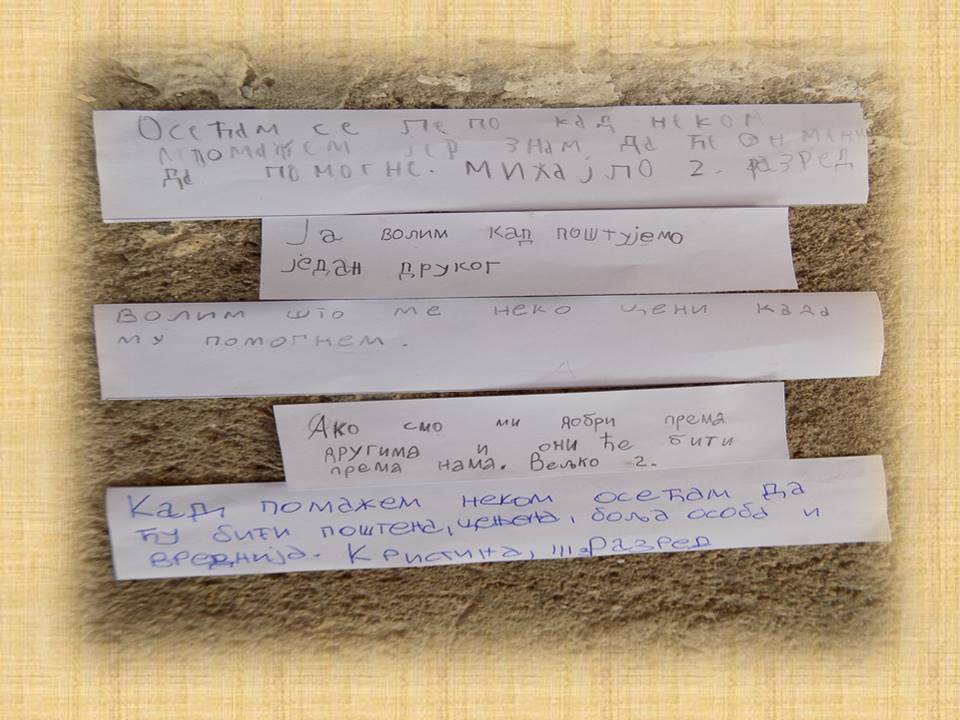 Осећам се лепо кад неком
помажем јер знам да ће он мени
да помогне. Михајло 2. разред
Ја волим кад поштујемо
један друког
волим што ме неко цени када
му помогнем.
Ако смо ми добри према
другима и они ће бити
према нама. Вељко 2.
Кад помажем неком осећам да
ћу бити поштена, цењена, боља особа и
вреднија. Кристина, III. Разред